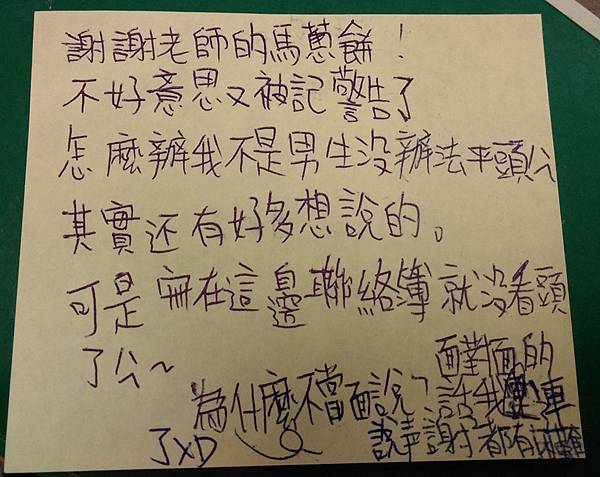 謝謝老師的馬蔥餅！
不好意思又被記警告了
怎麼辦我不是男生沒辦法平頭ㄙ
其實还有好多想說的。
可是寫在這邊聯絡簿就沒看頭
了ㄙ～
為什麼不當面說？
面對面的
話我連
說声謝謝都有困難
了XD